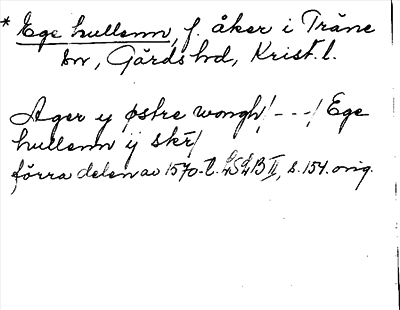 * Ege hullenn, f. åker i Träne
sn, Gärds hd, Krist. l.
Ager y østre wongh /---/ Ege
hullenn ij skr/
förra delen av 1570-t. LSLB II, s. 154. orig.